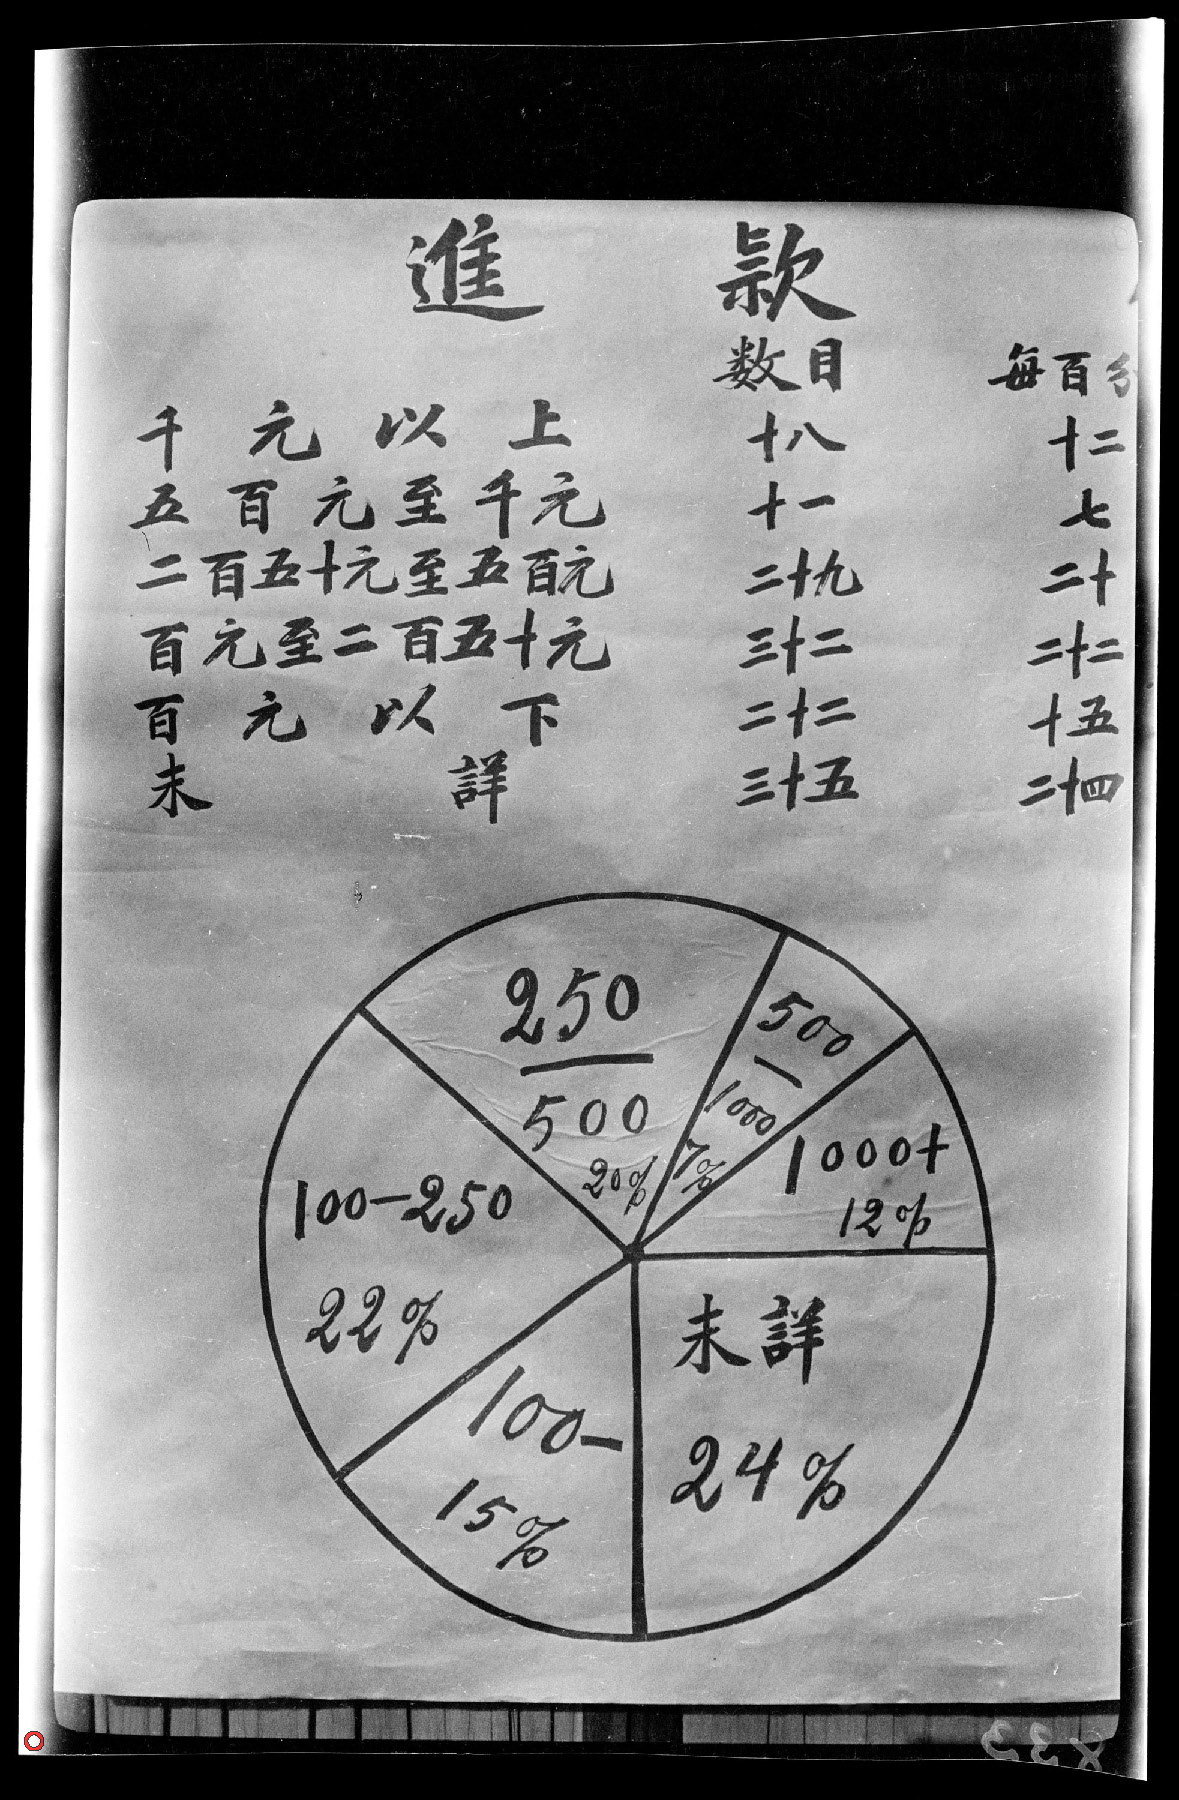 進款
数目 每百分
千元以上 十八 十二
五百元至千元 十一 七
二百五十元至五百元 二十九 二十
百元至二百五十元 三十二 二十二
百元以下 二十二 十五
未詳 三十五 二十四
250
500
20%
500
1000
7%
1000+
12%
100-250
22%
100-
15%
未詳
24%
833